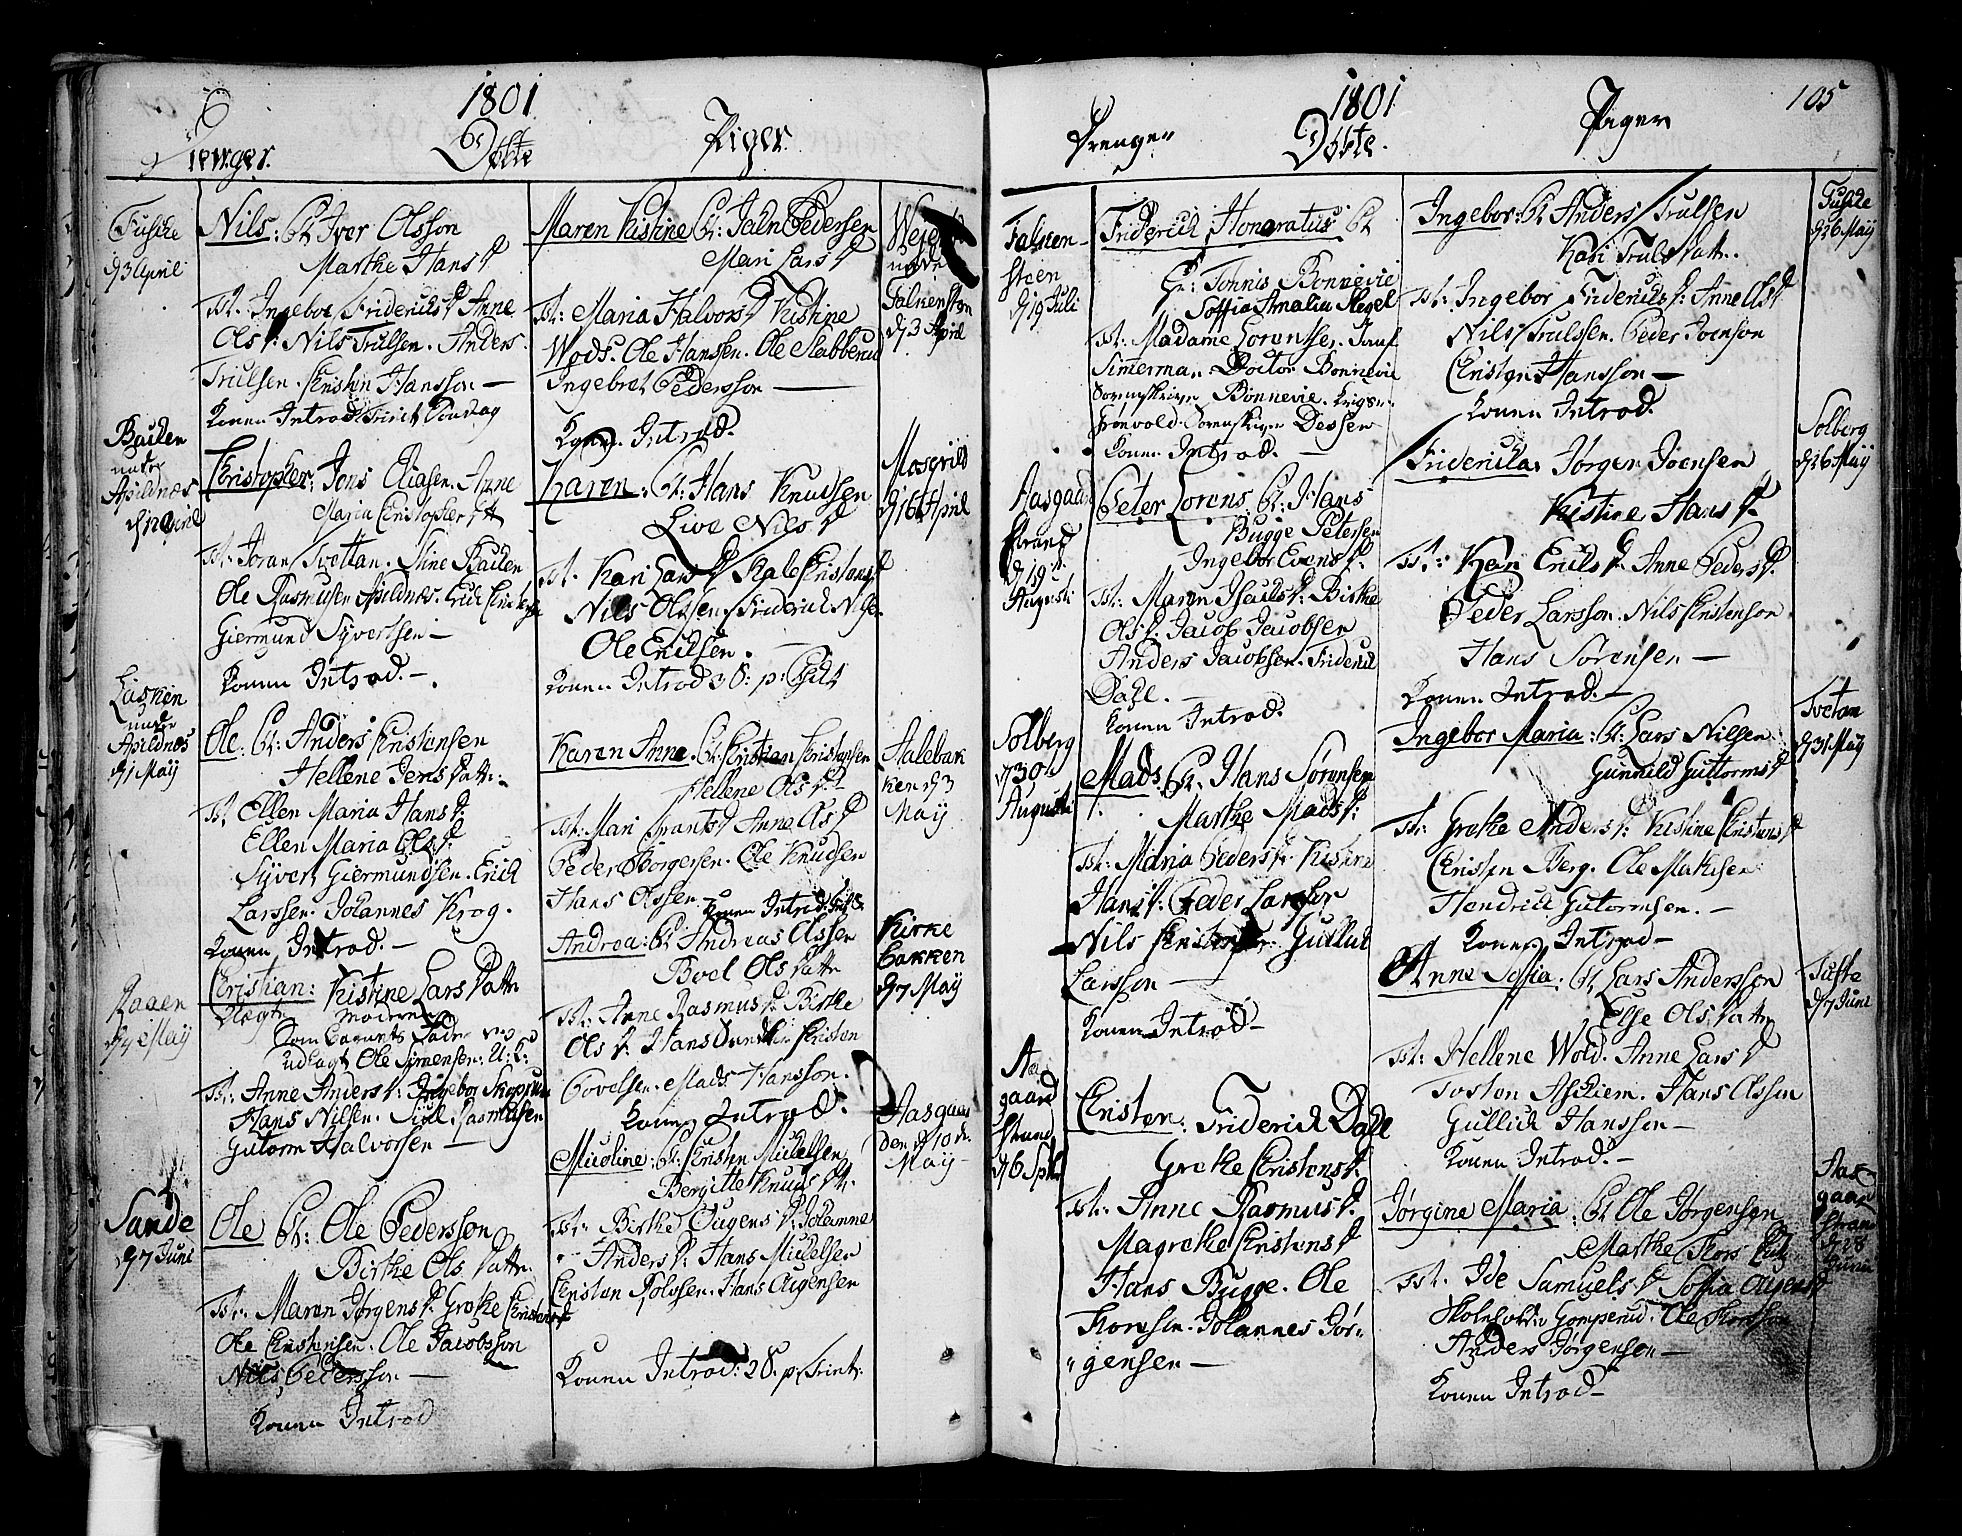 1801
Drenger. Døbte Piger.
Tufte
d 3 April
Nils: Pt. Iver Olsson
Marthe Hans D
Tst. Ingebor Friderichs D. Anne
Ols D. Nils Trulsen. Anders
Trulsen. Christen Hansson —
Konen Introd.
Backen
under
Apildnæs
Christopher: Jens Eliasen. Anne
Maria Christopher
Tst. Joran Tvettan. Stine Backen
Ole Rasmusen Apildnæs.
Giermund Syvertsen —
Konen Introd. —
under
Apildnæs
d 1 Maÿ
Ole: Pt: Anders Christensen
Hellene Jens Datt.
Tst. Ellen Maria Hans D.
Ellen Maria Ols D.
Syvert Giermundsen. Erich
Larssen. Johannes Krog.
Konen Introd. —
Maÿ
Christian: Kistine Lars Datt
Moderen
Som Barnets Fader
Udlagt Ole Simensen: U: K:
Tst. Anne Anders D. Ingebor Skoprum
Hans Nilsen. Rasmusen
Gutorm Halvorsen —
Sande
d 7 Juni
Ole Pt: Ole Pedersson
Birthe Ols Datt.
Tst. Maren Jørgens D. Grethe Christens D
Ole Christensen. Ole Jacobsson
Nils Pedersson —
Konen Introd
Maren Kistine Pt. John Pedersen
Mari Lars D
Tst. Maria Halvors D Kistine
Wods. Ole Hanssen. Ole Slabberud
Ingebret Pedersson —
Konen Introd.
under
Falkensten
d 3 April
Karen: Pt: Hans Knudsen
Live Nils D
Tst. Kari Lars D
Nils Olssen. Friderich Nilsen
Ole Erichsen.
Konen Introd
d 16 April
Karen Anne. Pt. Christian Christensen
Hellene Ols D
Tst. Mari Frants D Anne Ols D
Peder Borgersen. Ole Knudsen
Hans Olssen. Konen Introd.
d 3
Maÿ
Andrea: Pt Andreas Olssen
Boel Ols Datt
Tst. Anne Rasmus D. Birthe
Ols D. Hans
Povelsen. Mads Hansson.
Konen Introd.
Kirke
bakken
d 7 Maÿ
Micoline: Pt: Christen Michelsen
Bergitte Knuds
Tst. Birthe Augens D. Johanne
Anders D. Hans Michelsen
Christen Rolssen. Hans Augensen
Konen Introd: 28. p. Trinit.
Aasgaard
den d 10
Maÿ
1801 105
Drenger Døbte. Piger
Falken-
sten
d 19 Juli
Friderich Honoratus Pt
Hr: Tønnis Bonnevie
Soffia Amalia Flegel
Tst. Madame Lorentsen. Jomf
Simerman. Doctor Bonnevie
Sorenskriver Bonnevie.
Grønvold. Sorenskriver Dessen
Konen Introd. —
Aasgaard
strand
d 19
Augusti
Peter Lorens. Pt. Hans
Bugge Petersen
Ingebor Evens D.
Tst. Maren D. Birthe
Ols D. Jacob Jacobsen
Anders Jacobsen. Friderich
Dahl.
Konen Introd.
Solberg
d 30
Augusti
Mads. Pt. Hans Sørensen
Marthe Mads D.
Tst. Maria Peders D. Kistine
Hans D. Peder Larssen
Nils Gullich
Larsson —
Konen Introd —
Aas
gaard
strand
d 6 Spt
Christen: Friderich Dahl
Grethe Christens D.
Tst. Anne Rasmus D.
Magrethe Christens D
Hans Bugge. Ole
Thoresen. Johannes Jør-
gensen —
Ingebor: Pt Anders Trulsen
Kari Truls Datt.
Tst. Ingebor Friderichs D. Anne Ols D
Nils Trulssen. Peder Joenson
Christen Hansson —
Konen Introd.
Tufte
d 26 Maÿ
Friderica: Jørgen Joensen
Kistine Hans D.
Tst: Kari Erichs D. Anne Peders D.
Peder Larsson. Nils Christenson
Hans Sørensen —
Konen Introd. —
Solberg
d 26 Maÿ
Ingebor Maria: Pt: Lars Nilsen
Gunnild Guttorms D
Tst: Grethe Anders D. Kistine Christens D
Christen Berg. Ole Mathisen
Hendrich Gutormsen. —
Konen Introd —
Tvetan
d 31 Maÿ
Anne Soffia: Pt Lars Andersson
Else Ols Datt
Tst. Hellene Wold. Anne Lars D
Tosten Askiem. Hans Olsson
Gullich Hansson —
Konen Introd. —
Tufte
d 7 Juni
Jørgine Maria: Pt Ole Jørgensen
Marthe Thors
Tst. Ide Samuels D Soffia Augens D
Gomperud. Ole Thorsson
Anders Jørgensen —
Konen Introd —
Aas
gaard
strand
d 28
Junii